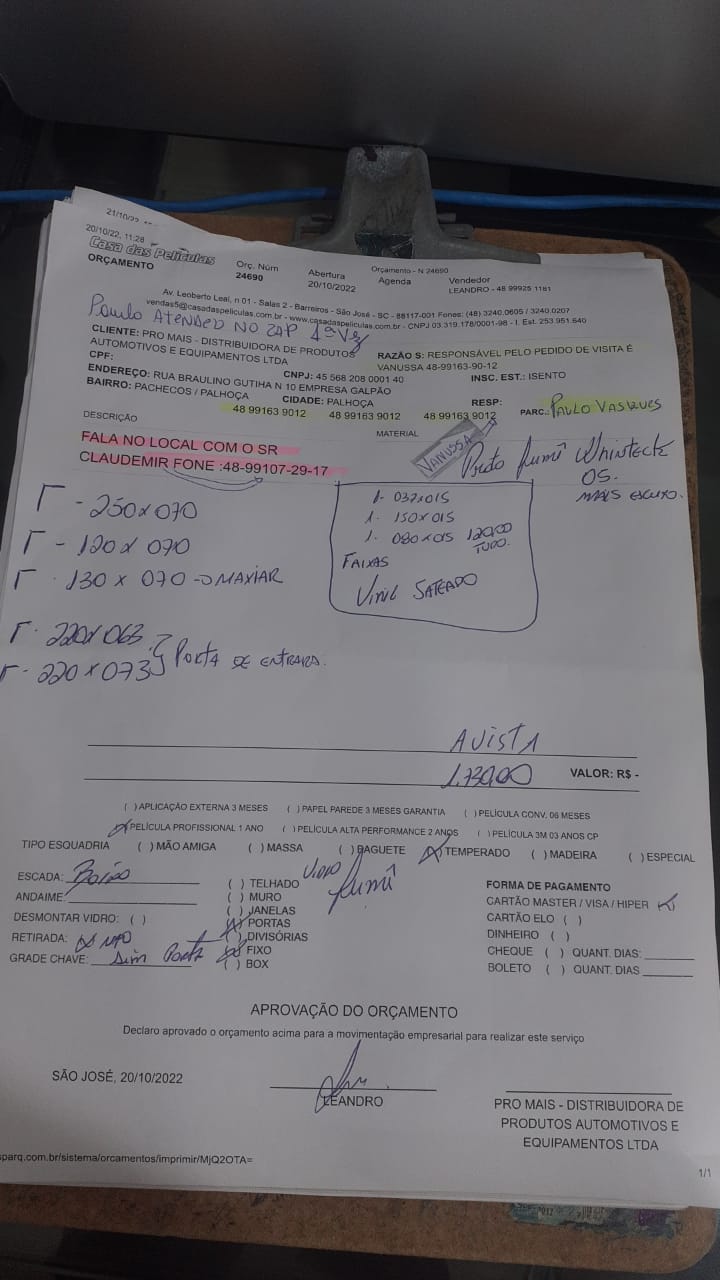 21/10/22
20/10/22, 11:28
Orçamento - N 24690
Casa das Películas
ORÇAMENTO
Orç. Núm
24690
Abertura
20/10/2022
Vendedor
LEANDRO - 48 99925 1181
Av. Leoberto Leal, n 01 - Salas 2 - Barreiros - São José - SC - 88117-001 Fones: (48) 3240.0605 / 3240.0207
vendas5@casadaspeliculas.com.br - www.casadaspeliculas.com.br - CNPJ 03.319.178/0001-98 - I. Est. 253.951.640
Paulo Atended no zap 1ª vez
CLIENTE: PRO MAIS - DISTRIBUIDORA DE PRODUTOS
AUTOMOTIVOS E EQUIPAMENTOS LTDA
RAZÃO S: RESPONSÁVEL PELO PEDIDO DE VISITA É
VANUSSA 48-99163-90-12
CPF:
CNPJ: 45 568 208 0001 40
INSC. EST.: ISENTO
ENDEREÇO: RUA BRAULINO GUTIHA N 10 EMPRESA GALPÃO
BAIRRO: PACHECOS / PALHOÇA
CIDADE: PALHOÇA
RESP:
48 99163 9012 48 99163 9012 48 99163 9012
PARC.: PAULO VASQUES
DESCRIÇÃO
MATERIAL
FALA NO LOCAL COM O SR
CLAUDEMIR FONE :48-99107-29-17
VANUSSA
Preto fumê Whinteck
05.
MAIS ESCURO.
1- 032x015
1. 150x015
1. 080x015 120,00
TUDO.
FAIXAS
Vinil SATEADO
Γ - 250x070
Γ - 120x070
Γ - 130x070 -> MAXIAR
Γ - 220x063
Γ - 220x073 } PORTA DE ENTRADA.
AVISTA
1.730,00 VALOR: R$ -
( ) APLICAÇÃO EXTERNA 3 MESES ( ) PAPEL PAREDE 3 MESES GARANTIA ( ) PELÍCULA CONV. 06 MESES
(X) PELÍCULA PROFISSIONAL 1 ANO ( ) PELÍCULA ALTA PERFORMANCE 2 ANOS ( ) PELÍCULA 3M 03 ANOS CP
TIPO ESQUADRIA ( ) MÃO AMIGA ( ) MASSA ( ) BAGUETE (X) TEMPERADO ( ) MADEIRA ( ) ESPECIAL
Vidro
fumê
ESCADA: Baixo
ANDAIME:
DESMONTAR VIDRO: ( )
RETIRADA: (X) NÃO
GRADE CHAVE: Sim Porta
( ) TELHADO
( ) MURO
( ) JANELAS
(X) PORTAS
( ) DIVISÓRIAS
(X) FIXO
( ) BOX
FORMA DE PAGAMENTO
CARTÃO MASTER / VISA / HIPER (X)
CARTÃO ELO ( )
DINHEIRO ( )
CHEQUE ( ) QUANT. DIAS:
BOLETO ( ) QUANT. DIAS
APROVAÇÃO DO ORÇAMENTO
Declaro aprovado o orçamento acima para a movimentação empresarial para realizar este serviço
SÃO JOSÉ, 20/10/2022
LEANDRO
PRO MAIS - DISTRIBUIDORA DE
PRODUTOS AUTOMOTIVOS E
EQUIPAMENTOS LTDA
sparq.com.br/sistema/orcamentos/imprimir/MjQ2OTA=
1/1